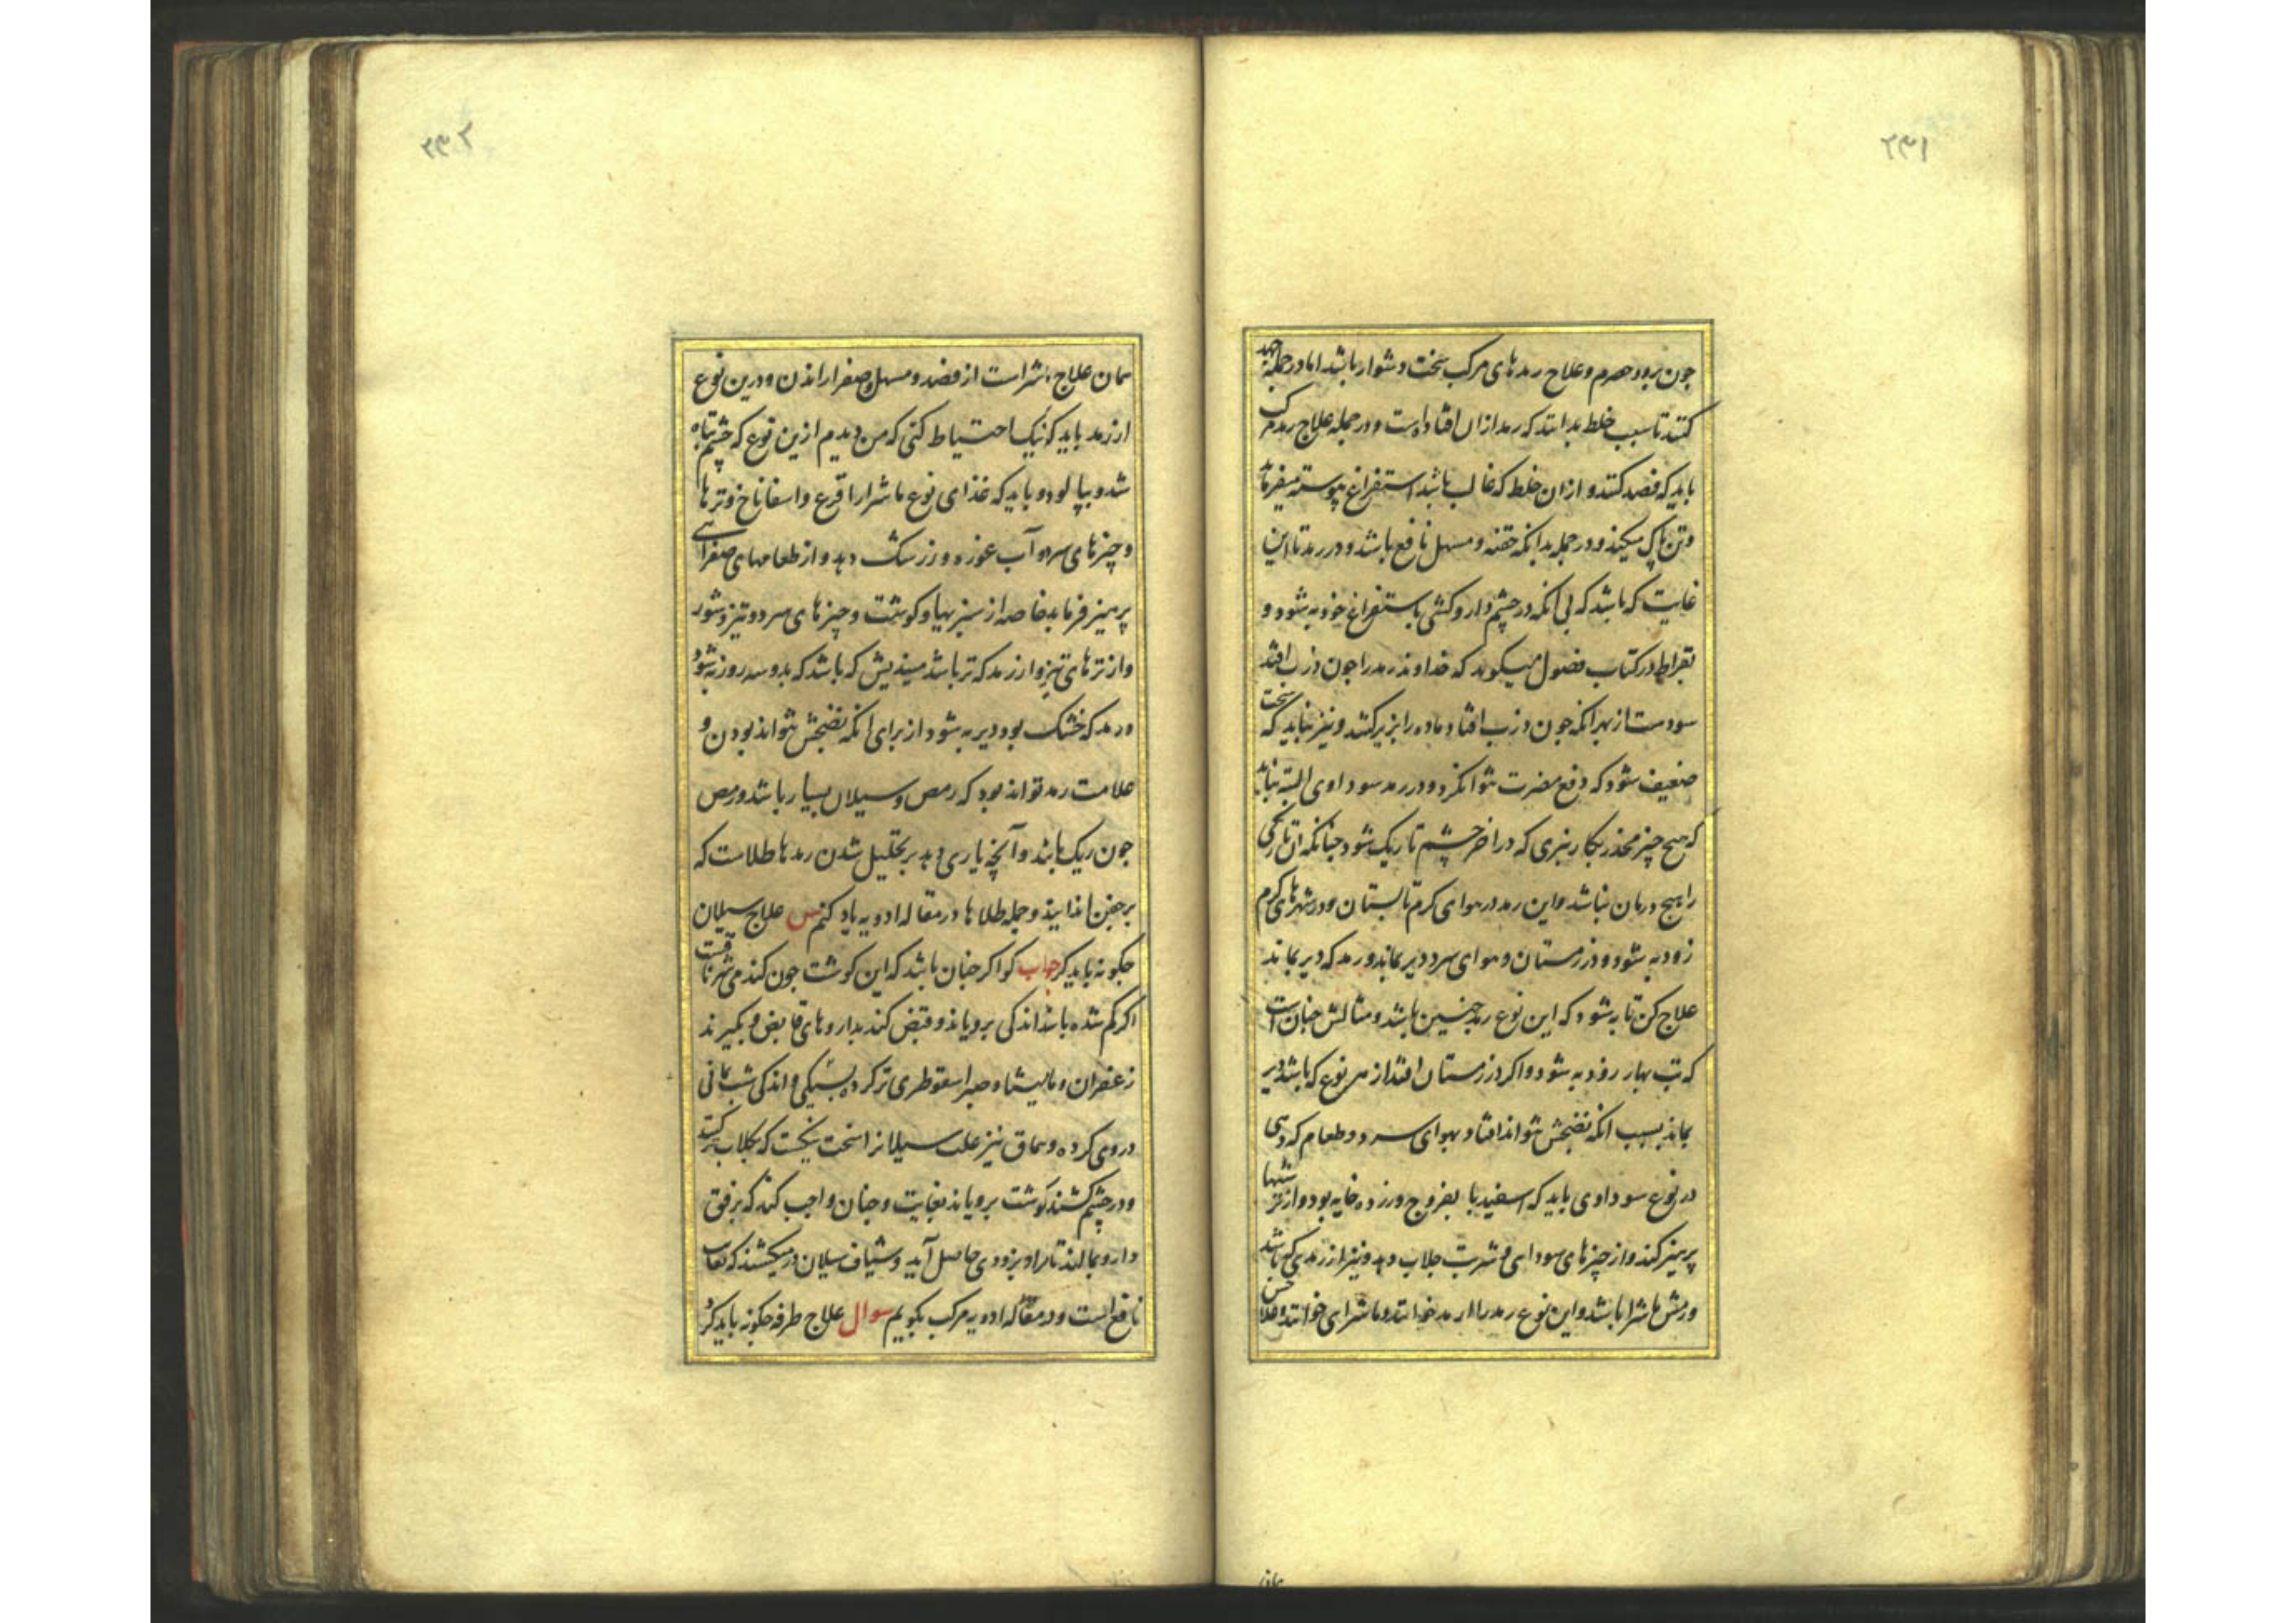 ۲۳۱
جون برود هم و علاج رمدهای مرکب سخت دشوار باشد اما در جمله جهد
کنند تا سبب خلط بدانند که رمد ازان افتاده است و در جمله علاج رمد مرکب
باید که فصد کنند و ازان خلط که غالب باشد استفراغ پیوسته میفرماید
و تن پاک میکنند و در جمله بدانکه حقنه و مسهل نافع باشد و در رمد تا این
غایت که باشد که بی انکه در چشم دارو کشی باستفراغ خود به شود و
بقراط در کتاب فصول میکوید که خداوند رمد را جون ذرب افتد
سودست از بهر انکه جون ذرب افتاد ماده را بزیر کشد و نیز نباید که سخت
ضعیف شود که دفع مضرت نتوانکرد و در رمد سوداوی البته نباید
که هیچ چیز مخدر بکار نبری که در اخر چشم تاریک شود جنانکه ان تاریکی
را هیچ درمان نباشد و این رمد در هوای کرم تابستان و در شهرهای کرم
زود به شود و در زمستان و هوای سرد دیر بماند و رمد که دیر بماند
علاج کن تا به شود که این نوع رمد جنین باشد و مثالش جنان است
که تب بهار زود به شود و اکر در زمستان افتد از هر نوع که باشد دیر
بماند بسبب انکه نضجش نتواند افتاد و بهوای سرد و طعام که دهی
در نوع سوداوی باید که اسفیدبا بفروج و زرده خایه بود و از ترشیها
پرهیز کند و از چیزهای سودایی و شربت جلاب دهد و نیز از رمدی که باشد
ورمش ماشرا باشد و این نوع رمد را ارمد خوانند و ماشرای خوانند و علاجش
همان
۲۳۲
همان علاج ماشراست از فصد و مسهل و صفرا راندن و درین نوع
از رمد باید که نیک احتیاط کنی که من دیدم ازین نوع که چشم تباه
شد و بپالود و باید که غذای نوع ماشرا را قرع و اسفاناخ و ترها
و چیزهای سرد و آب غوره و زرشک دهد و از طعامهای صفرایی
پرهیز فرماید خاصه از سیر بیاز و کوشت و چیزهای سرد و تیز و شور
و از ترهای تیز و از رمد که تر باشد میندیش که باشد که بدو سه روز به شود
و رمد که خشک بود دیر به شود از برای انکه نضجش نتواند بودن و
علامت رمد تواند بود که رمص و سیلان بسیار باشد و رمص
جون ریک باشد و آنچه یاری دهد بر تحلیل شدن رمدها طلاست که
بر جفن اندایند و جمله طلاها در مقاله ادویه یاد کنم س علاج سیلان
جکونه باید کرد جواب کو اکر جنان باشد که این کوشت جون کند می شهرنافت
اکر کم شده باشد اندکی برویاند و قبض کند بداروهای قابض و بکیرند
زعفران و مامیشا و صبر اسقوطری تر کرده بسیکی و اندکی شب یمانی
در وی کرده و سماق نیز علت سیلانرا سخت نیکست که بکلاب تر کنند
و در چشم کشند کوشت برویاند بغایت و جنان واجب کند که برفق
دارو بمالند تا مراد بزودی حاصل آید و شیاف سیلان در میکشند که بغایت
نافع است و در مقاله ادویه مرکب بکویم سوال علاج طرفه جکونه باید کرد